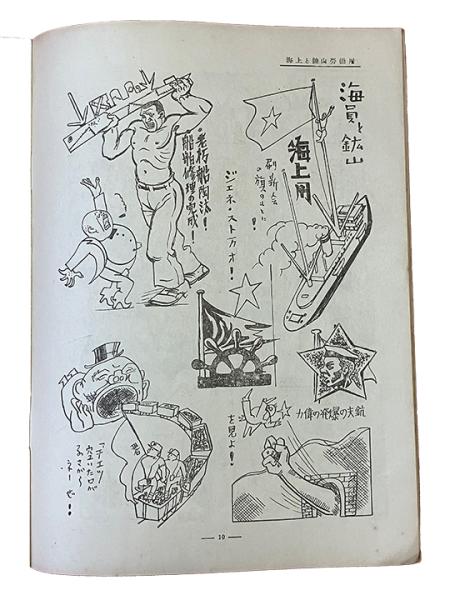 海上と鉱山労働用
海員と鉱山
海上用
刷新会
の旗のもとに!
ジェネ・ストカオ!
老朽船陶汰!
船舶修理の完成!
鉱夫の爆発の偉力
を見よ!
「チェッ
空いた口が
ふさがら
ネーや!!
— 10 —